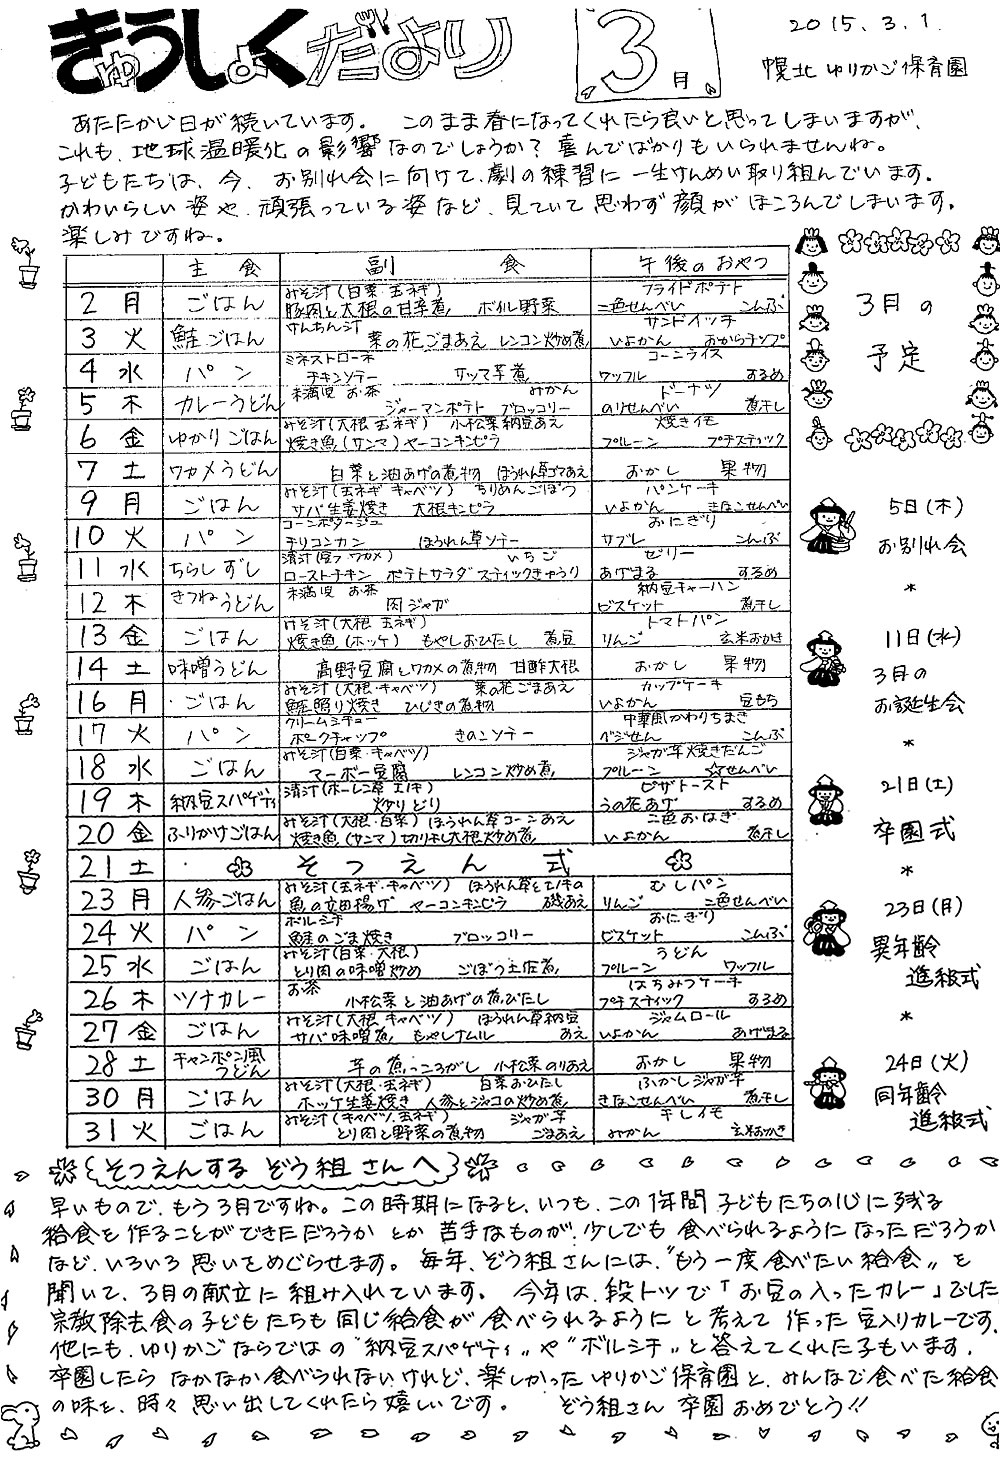 きゅうしょくだより
3月
2015.3.1.
幌北ゆりかご保育園
あたたかい日が続いています。 このまま春になってくれたら良いと思ってしまいますが、
これも、地球温暖化の影響なのでしょうか？喜んでばかりもいられませんね。
子どもたちは、今、お別れ会に向けて、劇の練習に一生けんめい取り組んでいます。
かわいらしい姿や、頑張っている姿など、見ていて思わず顔がほころんでしまいます。
楽しみですね。
主食 副食 午後のおやつ
2 月 ごはん みそ汁(白菜・玉ネギ) フライドポテト
豚肉と大根の甘辛煮 ボイル野菜 二色せんべい こんぶ
3 火 鮭ごはん けんちん汁 サンドイッチ
菜の花ごまあえ レンコン炒め煮 いよかん おからチップ
4 水 パン ミネストローネ コーンライス
チキンソテー サツマ芋煮 ワッフル するめ
5 木 カレーうどん 未満児 お茶 みかん ドーナツ
ジャーマンポテト ブロッコリー のりせんべい 煮干し
6 金 ゆかりごはん みそ汁(大根・玉ネギ) 小松菜納豆あえ 焼きイモ
焼き魚(サンマ) ヤーコンキンピラ プルーン プチスティック
7 土 ワカメうどん 白菜と油あげの煮物 ほうれん草ゴマあえ おかし 果物
9 月 ごはん みそ汁(玉ネギ・キャベツ) ちりめんごぼう パンケーキ
サバ生姜焼き 大根キンピラ いよかん きなこせんべい
10 火 パン コーンポタージュ おにぎり
チリコンカン ほうれん草ソテー サブレ こんぶ
11 水 ちらしずし 清汁(豆フ・ワカメ) いちご ゼリー
ローストチキン ポテトサラダ スティックきゅうり あげまる するめ
12 木 きつねうどん 未満児 お茶 納豆チャーハン
肉ジャガ ビスケット 煮干し
13 金 ごはん みそ汁(大根・玉ネギ) トマトパン
焼き魚(ホッケ) もやしおひたし 煮豆 りんご 玄米おかき
14 土 味噌うどん 高野豆腐とワカメの煮物 甘酢大根 おかし 果物
16 月 ごはん みそ汁(大根・キャベツ) 菜の花ごまあえ カップケーキ
鮭照り焼き ひじきの煮物 いよかん 豆もち
17 火 パン クリームシチュー 中華風かわりちまき
ポークチャップ きのこソテー ベジせん こんぶ
18 水 ごはん みそ汁(白菜・キャベツ) ジャガ芋焼きだんご
マーボー豆腐 レンコン炒め煮 プルーン ☆せんべい
19 木 納豆スパゲティ 清汁(ホーレン草 エノキ) ピザトースト
炒りどり うの花あげ するめ
20 金 ふりかけごはん みそ汁(大根・白菜) ほうれん草コーンあえ 二色おはぎ
焼き魚(サンマ) 切り干し大根炒め煮 いよかん 煮干し
21 土 そつえん式
23 月 人参ごはん みそ汁(玉ネギ・キャベツ) ほうれん草とエノキの むしパン
魚の立田揚げ ヤーコンキンピラ 磯あえ りんご 二色せんべい
24 火 パン ボルシチ おにぎり
鮭のごま焼き ブロッコリー ビスケット こんぶ
25 水 ごはん みそ汁(白菜・大根) うどん
とり肉の味噌炒め ごぼう土佐煮 プルーン ワッフル
26 木 ツナカレー お茶 はちみつケーキ
小松菜と油あげの煮びたし プチスティック するめ
27 金 ごはん みそ汁(大根・キャベツ) ほうれん草納豆 ジャムロール
サバ味噌煮 もやしナムル あえ いよかん あげまる
28 土 チャンポン風うどん 芋の煮っころがし 小松菜のりあえ おかし 果物
30 月 ごはん みそ汁(大根・玉ネギ) 白菜おひたし ふかしジャガ芋
ホッケ生姜焼き 人参とジャコの炒め煮 きなこせんべい 煮干し
31 火 ごはん みそ汁(キャベツ・玉ネギ) ジャガ芋 干しイモ
とり肉と野菜の煮物 ごまあえ みかん 玄米おかき
3月の
予定
5日(木)
お別れ会
＊
11日(水)
3月の
お誕生会
＊
21日(土)
卒園式
＊
23日(月)
異年齢
進級式
＊
24日(火)
同年齢
進級式
そつえんする ぞう組さんへ
早いもので、もう3月ですね。この時期になると、いつも、この1年間 子どもたちの心に残る
給食を作ることができただろうか とか 苦手なものが、少しでも 食べられるようになっただろうか
など、いろいろ思いをめぐらせます。毎年、ぞう組さんには、“もう一度食べたい給食〟を
聞いて、3月の献立に組み入れています。 今年は、段トツで「お豆の入ったカレー」でした
宗教除去食の子どもたちも同じ給食が食べられるようにと考えて作った豆入りカレーです。
他にも、ゆりかごならではの“納豆スパゲティ〟や“ボルシチ〟と答えてくれた子もいます。
卒園したら なかなか食べられないけれど、楽しかったゆりかご保育園と、みんなで食べた給食
の味を、時々 思い出してくれたら嬉しいです。 ぞう組さん 卒園おめでとう!!